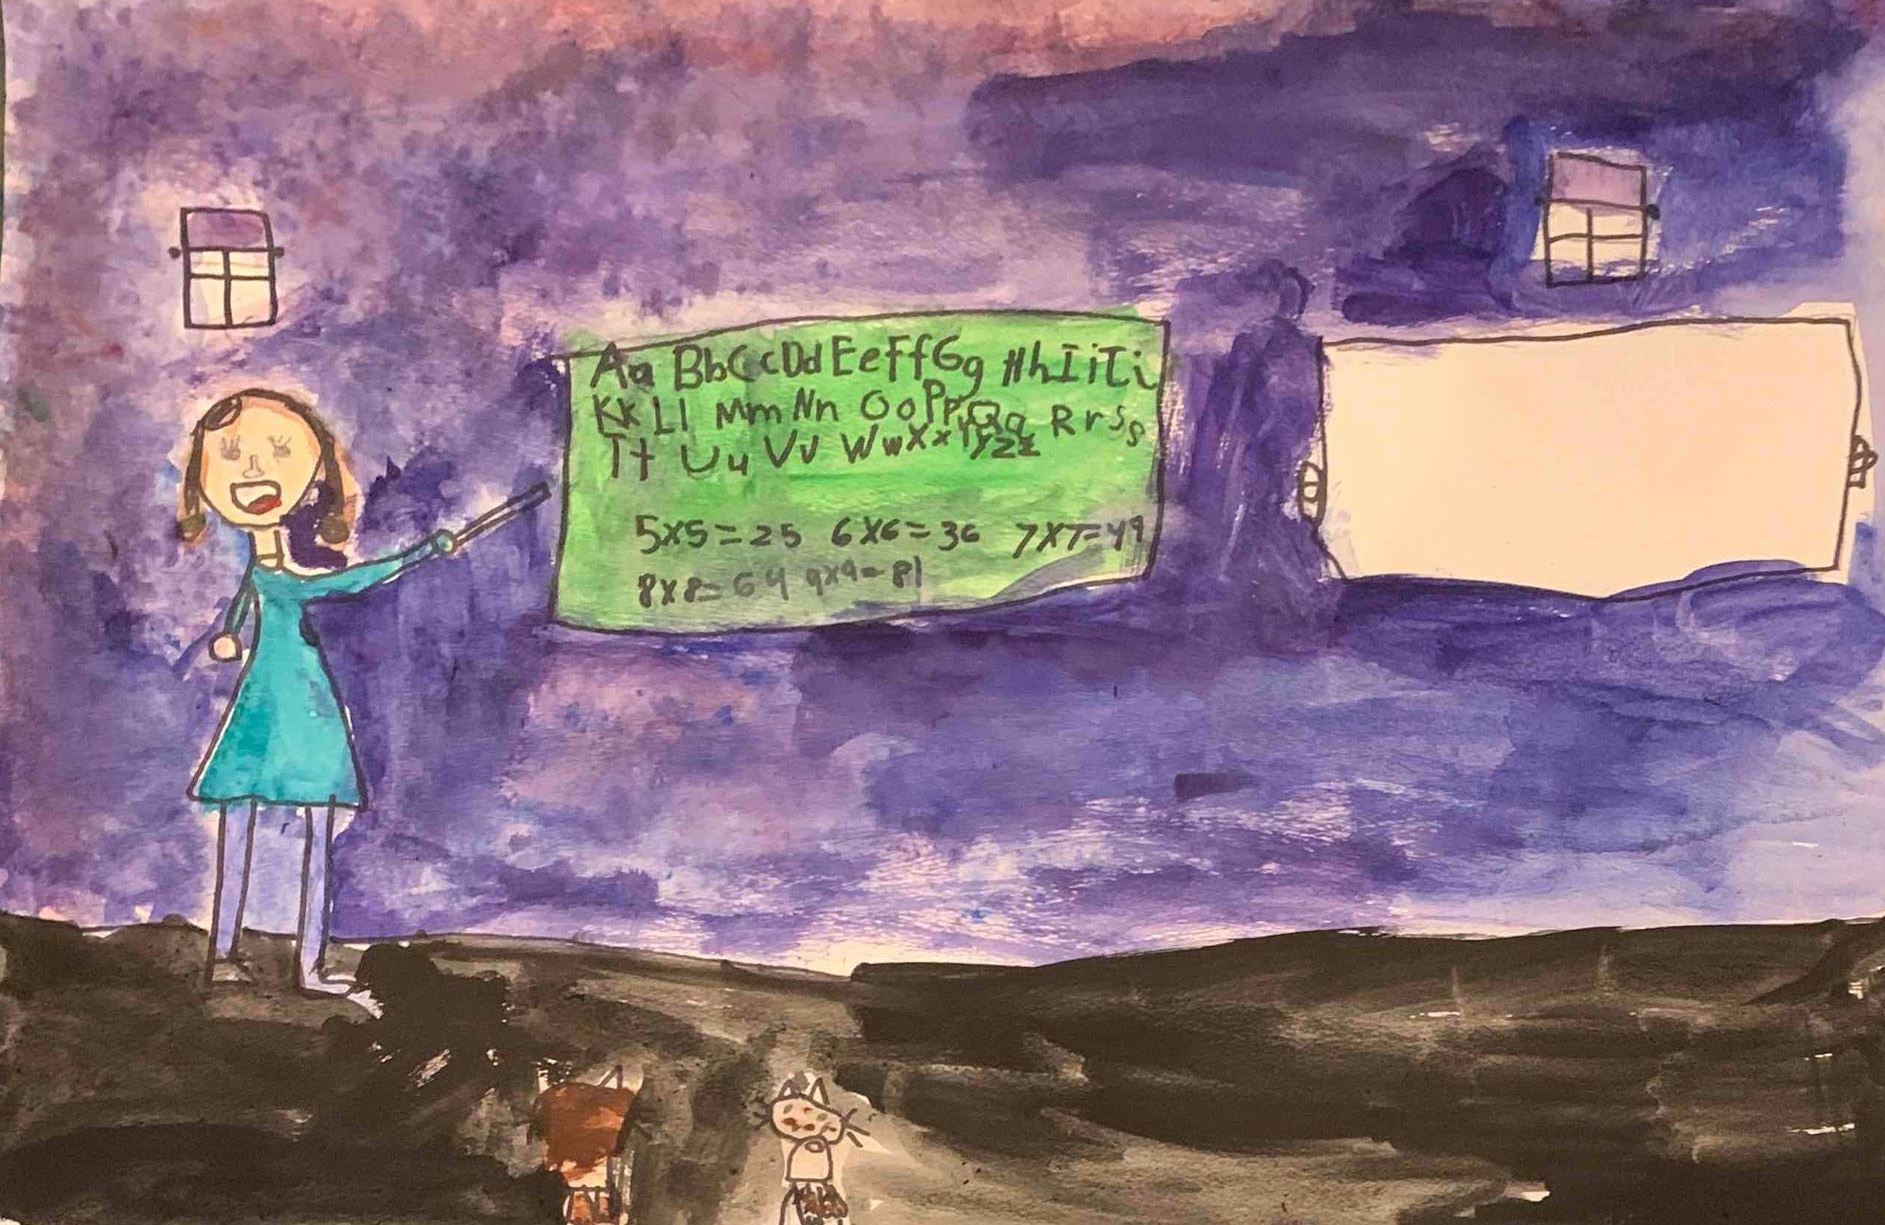 Aa Bb Cc Dd Ee Ff Gg Hh Ii Ii
Kk Ll Mm Nn Oo Pp Qq Rr Ss
Tt Uu Vv Ww Xx Yy Zz
5x5=25 6x6=36 7x7=49
8x8=64 9x9=81